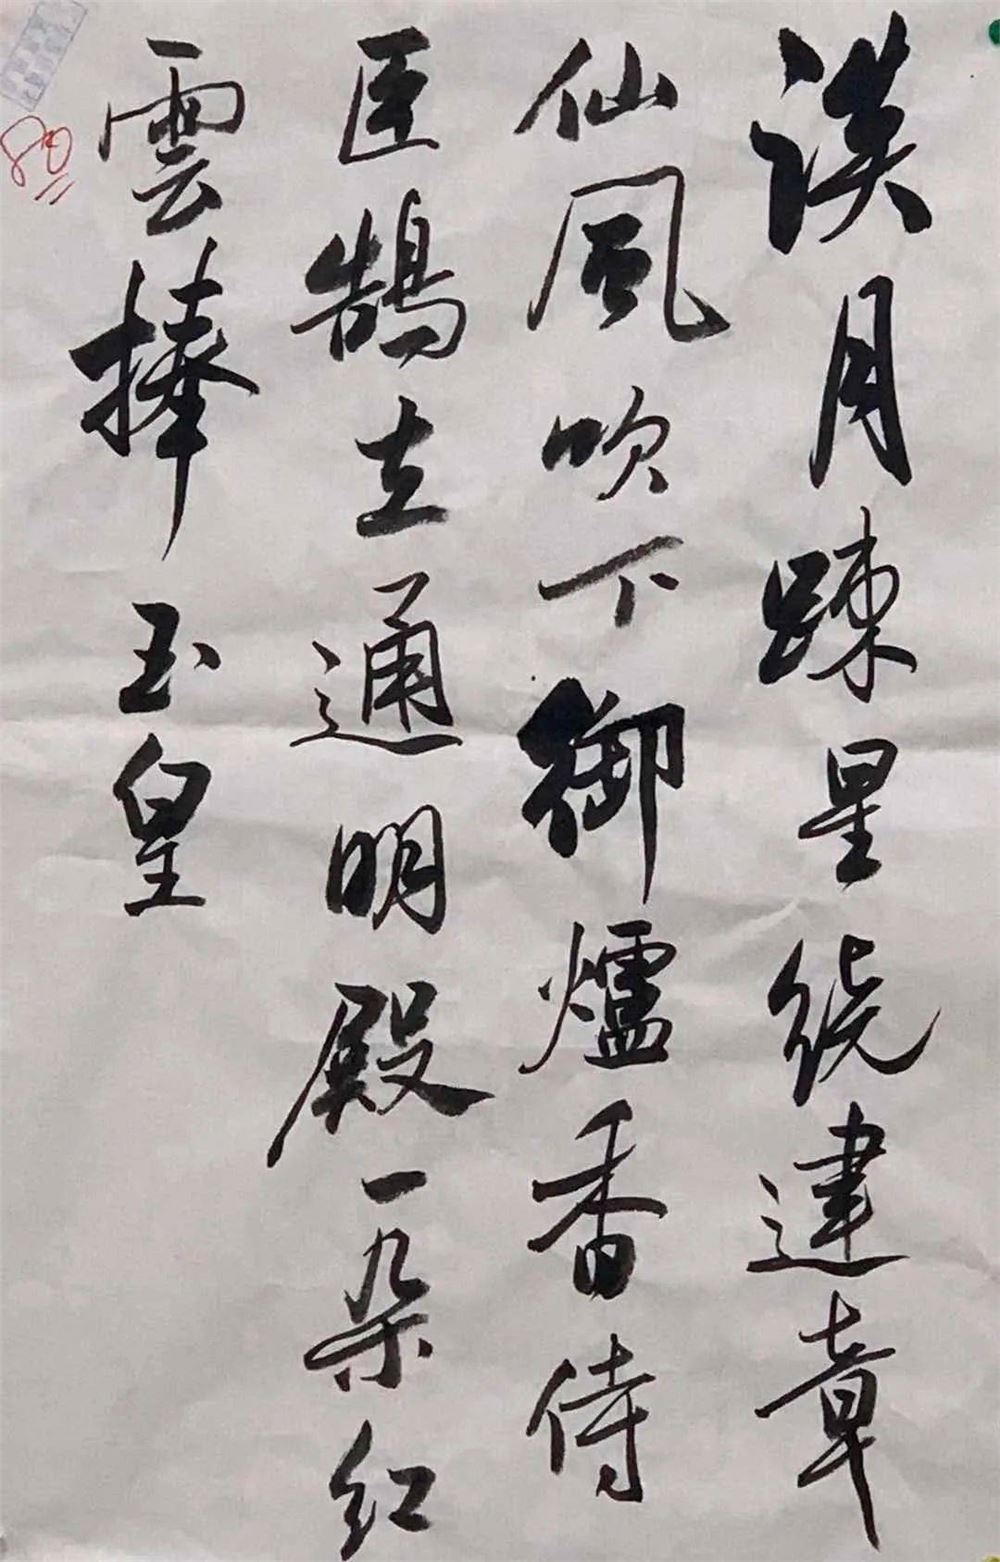 淡月疎星绕建章
仙風吹下御爐香侍
臣鵠立通明殿一朵红
雲捧玉皇
80